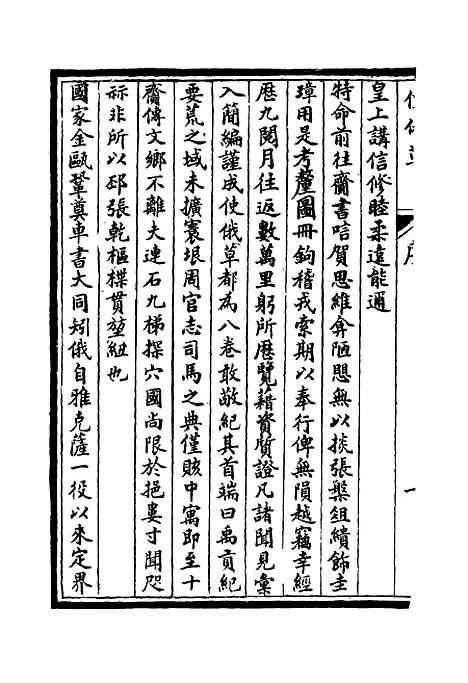 皇上講信修睦柔遠能邇
特命前往齎書唁賀思維弇陋思無以掞張槃俎繢飾圭
璋用是考釐圖冊鉤稽我索期以奉行俾無隕越竊幸經
厯九閱月往返數萬里躬所厯覽藉資質證凡諸聞見彙
入簡編謹成使俄草都為八卷敢敬紀其首端曰禹貢紀
要荒之域未擴寰垠周官志司馬之典僅賅中寓即至十
齋傳文鄉不離夫連石九梯探穴國尚限於挹婁寸聞咫
眎非所以邳張乾樞楪貫堃紐也
國家金甌鞏奠車書大同矧俄自雅克薩一役以來定界
序
一